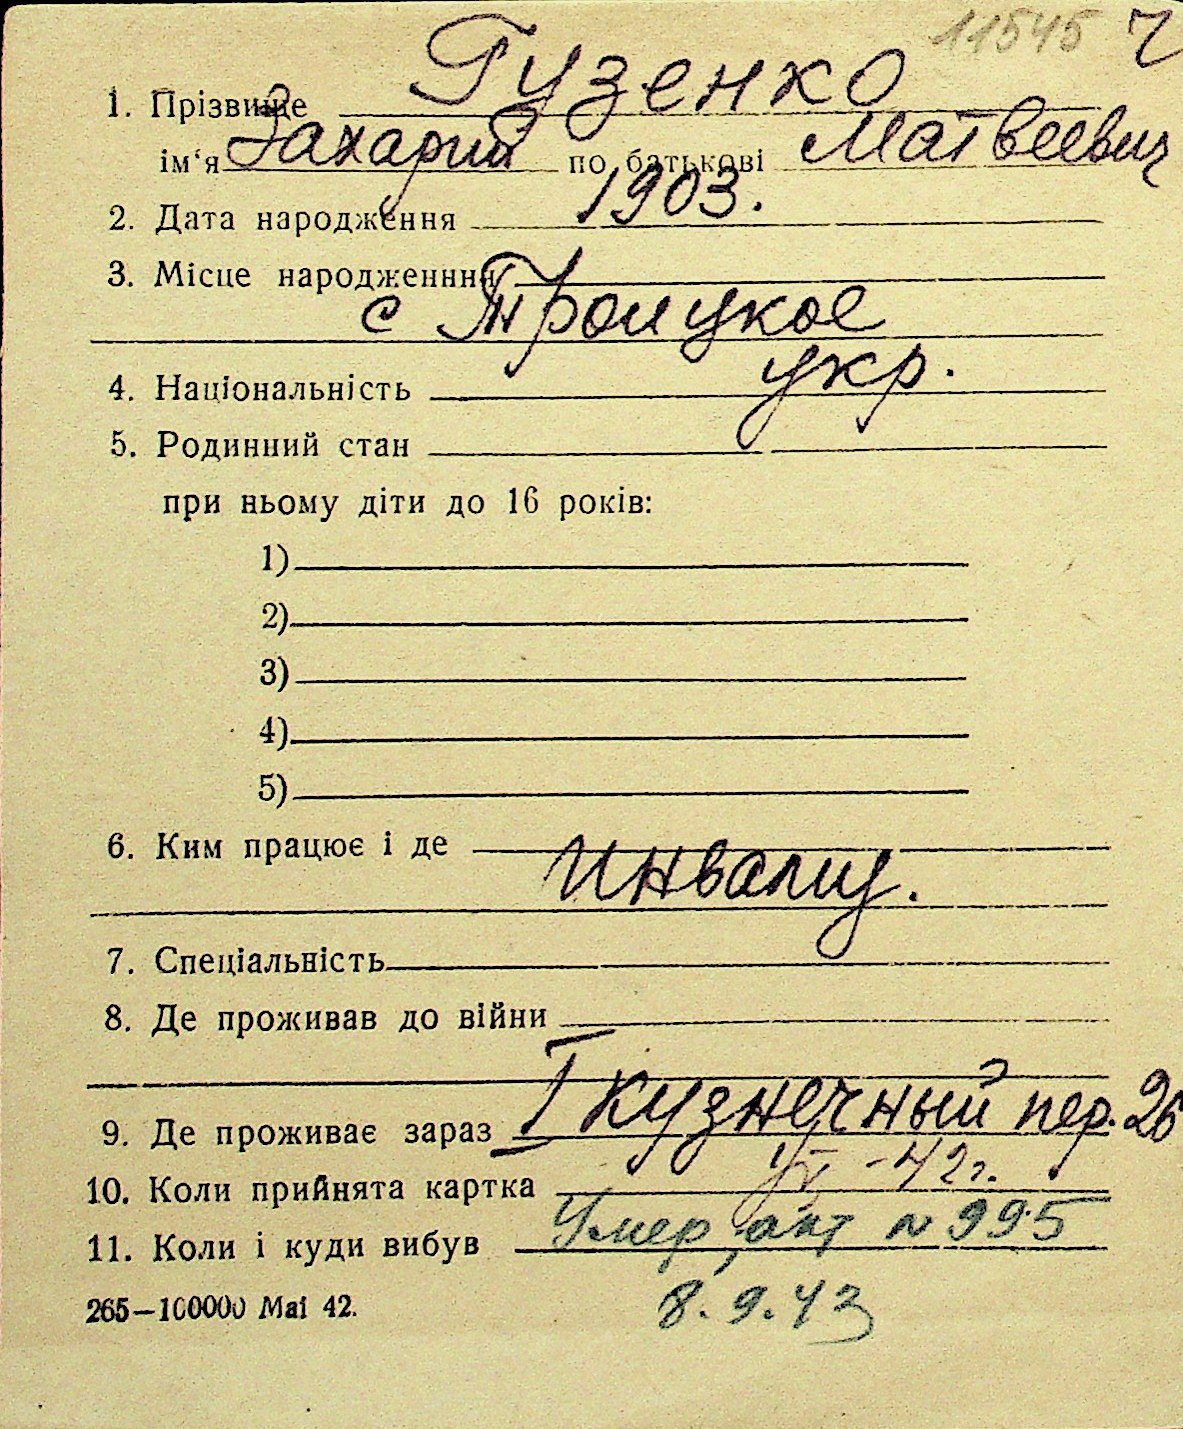 11545 Ч
1. Прізвище Гузенко
ім‘я Захарий по батькові Матвеевич
2. Дата народження 1903.
3. Місце народженння
с Троицкое
4. Національність укр.
5. Родинний стан
при ньому діти до 16 років:
1)
2)
3)
4)
5)
6. Ким працює і де
инвалид.
7. Спеціальність
8. Де проживав до війни
9. Де проживає зараз I кузнечный пер. 26
10. Коли прийнята картка -42г.
11. Коли і куди вибув Умер, акт N 995
265—100000 Mai 42. 8.9.43